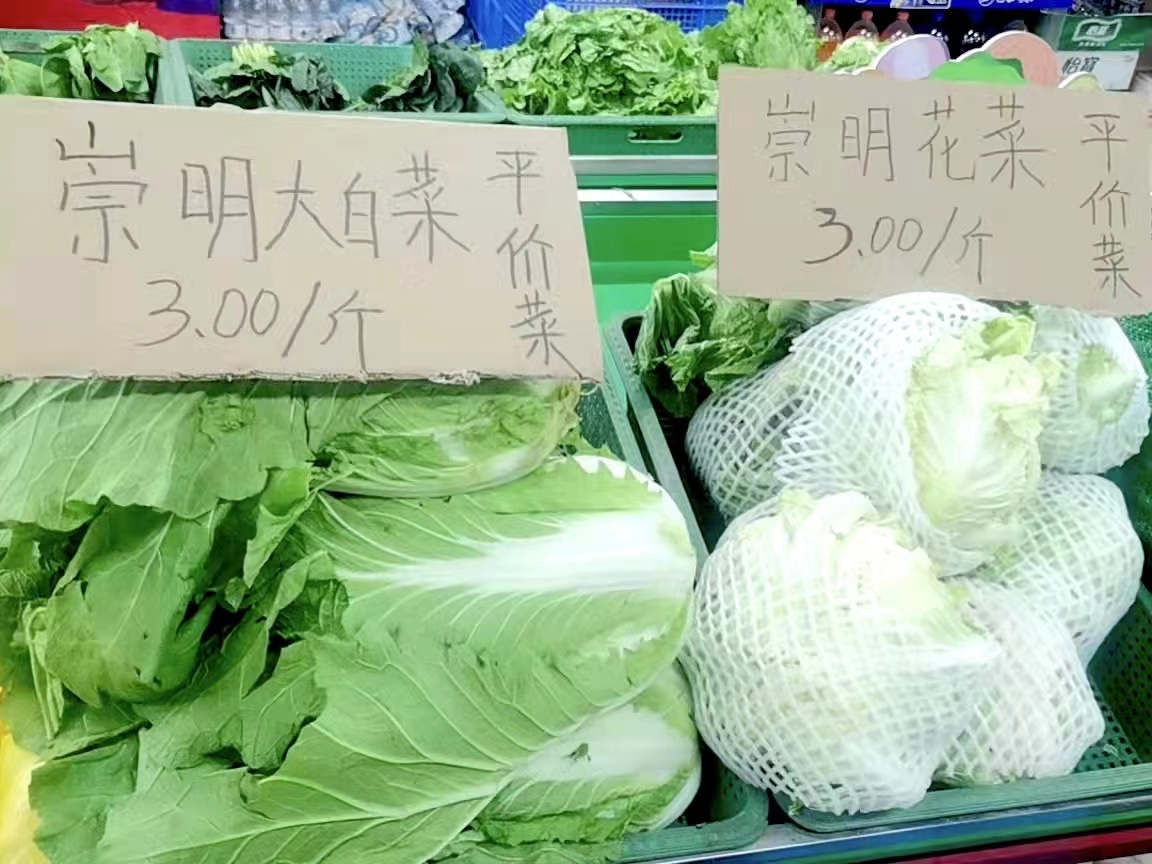 崇明大白菜
3.00/斤
平价菜
崇明花菜
3.00/斤
平价菜
怡宝